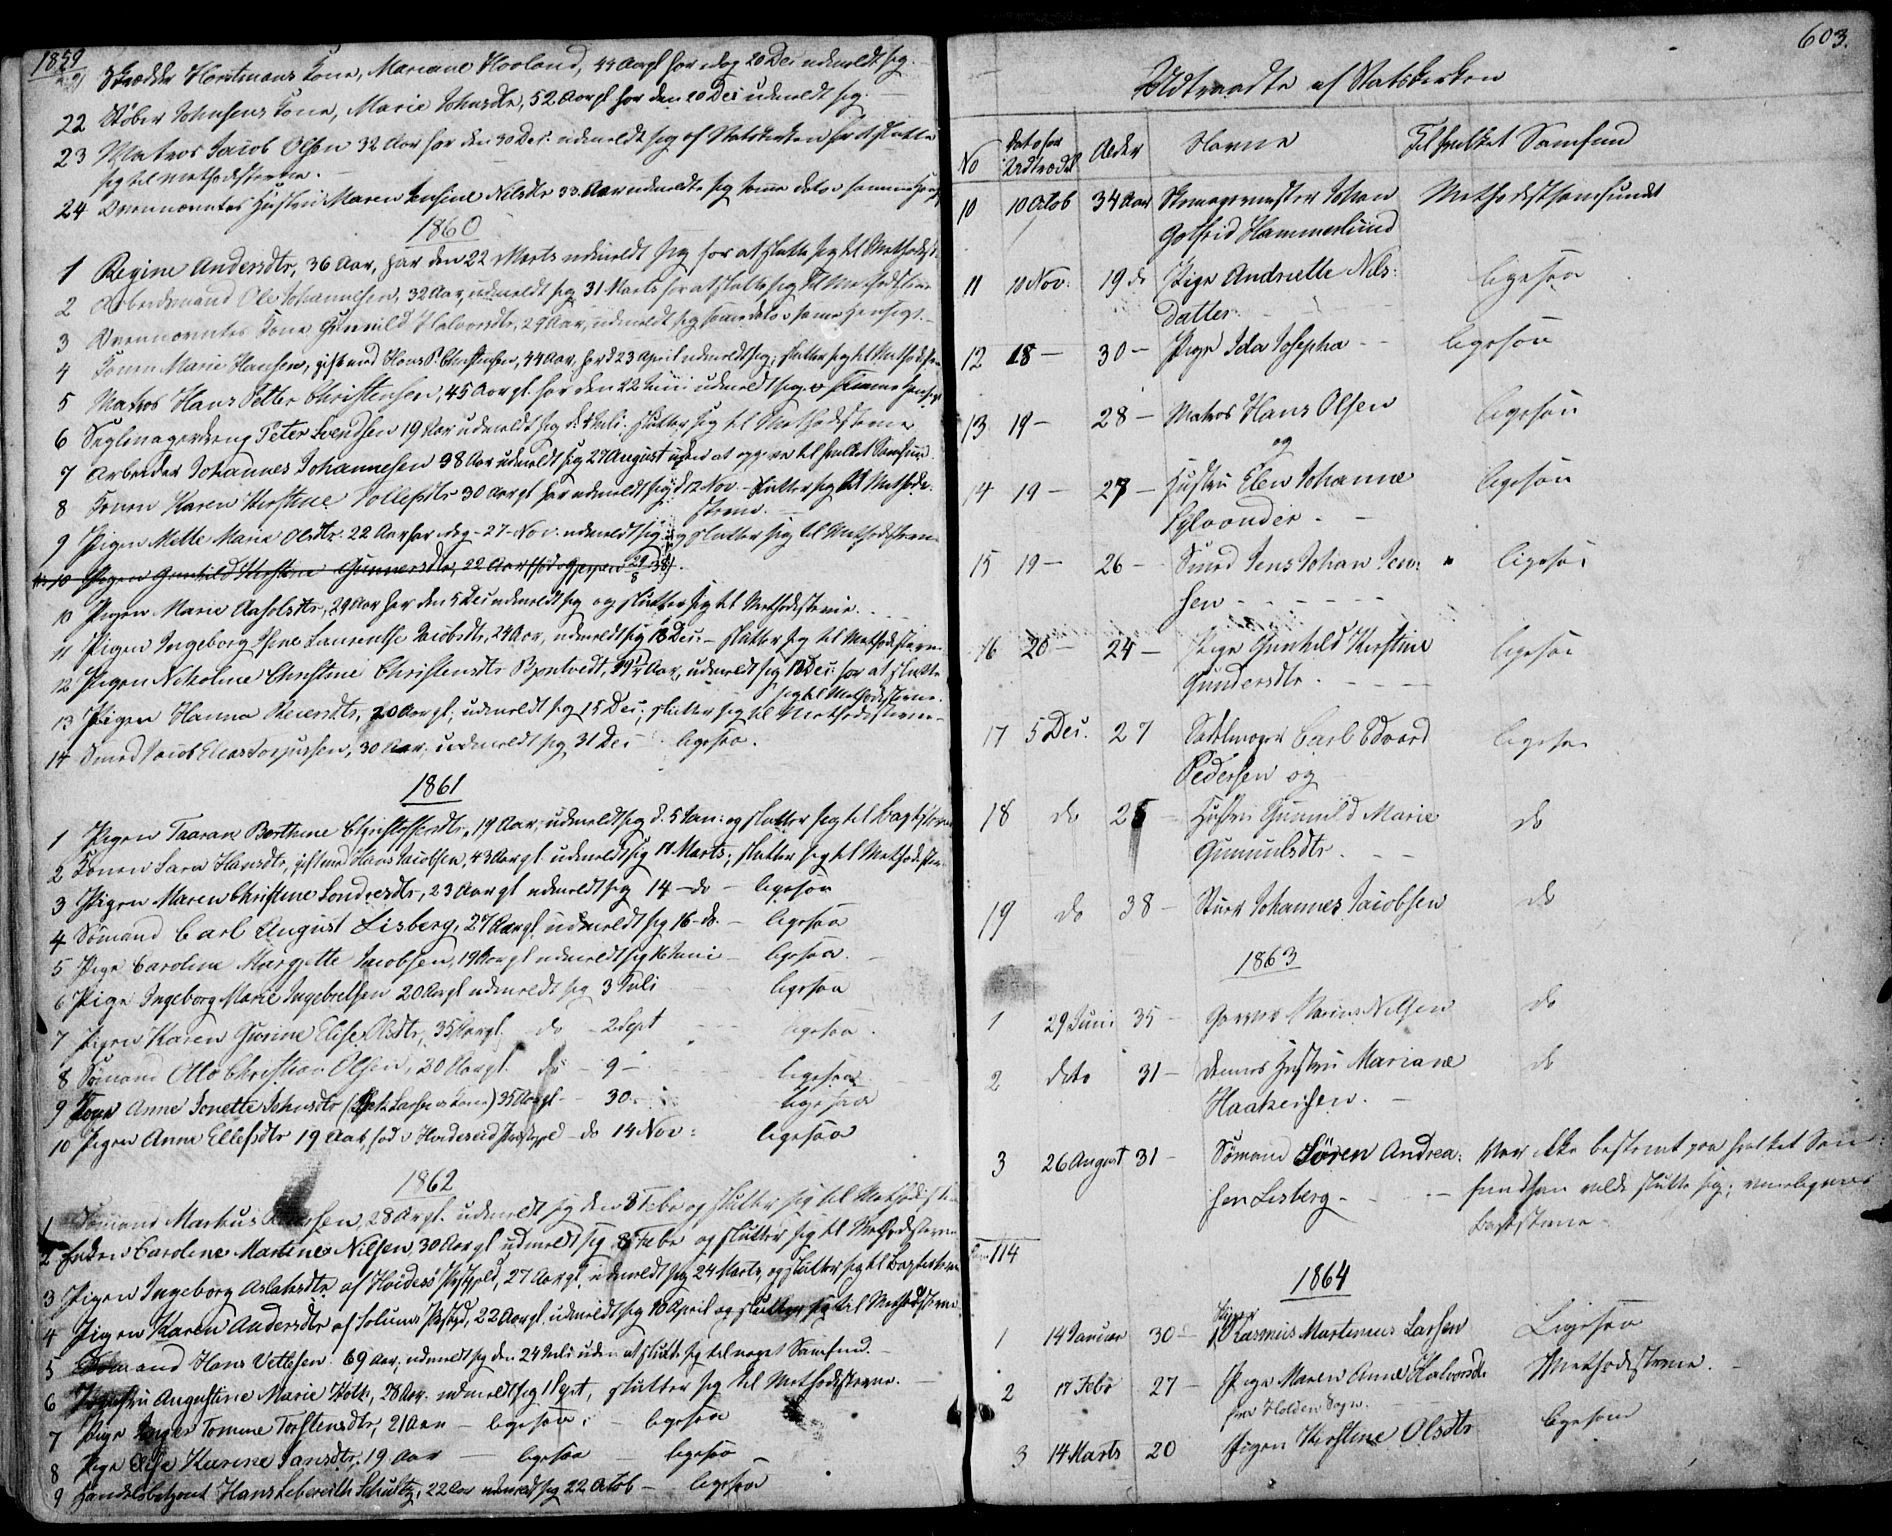 1859
Skrædder Horstmans Kone, Mariane Hovland, 44 Aar gl har idag 20 Dec udmeldt sig.
22 Støber Johnsens Kone, Marie Johnsdtr, 52 Aar gl har den 20 Dec udmeldt sig. —
23 Matros Jacob Olsen 32 Aar har den 30 Dec: udmeldt sig af Statskirken for at slutte
sig til Methodisterne. —
24 Ovennævntes Hustru Maren Jensine Nilsdtr 33 Aar udmeldte sig samme dato i samme
1860
1 Regine Andersdtr, 36 Aar, har den 22 Marts udmeldt sig for at slutte sig til Methodist
2 Arbeidsmand Ole Johannesen, 32 Aar, udmeldt sig 31 Marts for at slutte sig til Methodisterne
3 Ovennævntes Kone Gunnild Halvorsdtr, 29 Aar, udmeldt sig samme dato i samme Hensigt. —
4 Konen Marie Hansen, gift med Hans P. Christensen, 44 Aar, har d 23 April udmeldt sig; slutter sig til Methodisterne
5 Matros Hans Petter Christensen, 45 Aar gl. har den 22 Juni udmeldt sig i samme Hensigt
6 Seglmagerdreng Peter Svendsen 19 Aar udmeldt sig d. Juli. slutter sig til Methodisterne
7 Arbeider Johannes Johannesen 38 Aar udmeldt sig 27 August uden at opgive til hvilket Samfund
8 Konen Karen Kirstine Tollefsdtr 30 Aar gl har udmeldt sig d 12 Nov. — slutter sig til Methodi-
sterne. —
9 Pigen Mette Marie Olsdtr. 22 Aar har idag — 27 Nov. udmeldt sig og slutter sig til Methodisterne
10 Pigen Gunhild Kirstine Gunnersdtr, 22 Aar
10 Pigen Marie Aasolsdtr, 29 Aar har den 5 Dec udmeldt sig og slutter sig til Methodisterne. —
11 Pigen Ingeborg Laurentse Jacobsdtr, 24 Aar, udmeldt sig 13 Dec: — slutter sig til Methodisterne
12 Pigen Nicholine Christine Christensdtr Bjøntvedt, 19½ Aar, udmeldt sig 13 Dec: for at slutte
sig til Methodisterne.
13 Pigen Hanna Reiersdtr, 20 Aar gl; udmeldt sig 15 Dec; slutter sig til Methodisterne —
14 Smed Jacob Elias 30 Aar, udmeldt sig 31 Dec ligesaa.
1861
1 Pigen Taaran Berthine Christoffersdtr, 19 Aar, udmeldt sig d. 5 Jan: og slutter sig til Baptisterne
2 Konen Sara Hansdtr, gift med Hans Jacobsen, 43 Aar gl. udmeldt sig 11 Marts; slutter sig til Methodister
3 Pigen Maren Christine Sondresdtr, 23 Aar gl udmeldt sig 14 — do — ligesaa
4 Sømand Carl August Lisberg, 27 Aar gl. udmeldt sig 16 — do. — ligesaa
5 Pige Caroline Margrette Jacobsen, 19 Aar gl udmeldt sig 16 Juni — ligesaa. —
6 Pige Ingeborg Marie Ingebretsen 20 Aar gl udmeldt sig 3 Juli ligesaa
7 Pigen Karen Gurine Elise Olsdtr, 35 Aar gl. do — 2 Sept — ligesaa.
8 Sømand Otto Christian Olsen, 20 Aar gl. do — 9 — ligesaa
9 Kone Anne Jonette Johnsdtr 35 Aar gl — 30 — ligesaa
10 Pigen Anne Ellefsdtr 19 Aar, født i Hviteseid Præstegjeld — do 14 Nov: ligesaa
1862
1 Sømand Markus 28 Aar gl. udmeldt sig den 3 Febr og slutter sig til Methodister
2 Enken Caroline Martine Nilsen, 30 Aar gl udmeldt sig 8 Febr og slutter sig til Methodisterne
3 Pigen Ingeborg Aslaksdtr af Hvidesø Præstgjeld, 27 Aar gl. udmeldt sig 24 Marts, og slutter sig til Baptisterne
4 Pigen Karen Andersdtr af Solums Præstgjd, 22 Aar gl, udmeldt sig 10 April og slutter sig til Methodisterne
5 Sømand Hans Vetlesen. 69 Aar, udmeldt sig den 24 Juli uden at slutte sig til noget Samfund. —
6 Jomfru Augustine Marie Holte, 28 Aar. udmeldt sig 1 Sept, slutter sig til Methodisterne. —
7 Pige Inger Tomine Torstensdtr, 21 Aar — ligesaa, — ligesaa
8 Pige Else Karine Jansdtr, 19 Aar — ligesaa ligesaa
9 Handelsbetjent Hans Leberecth Schultz, 22 Aar udmeldt sig 22 Octob — ligesaa
603.
Udtraadte af Statskirken
No Dato for Udtrædel. Alder Navne Til hvilket Samfund
10 10 Octob 34 Aar Skomagermester Johan Methodistsamfundet
Gotfrid Hammerlund
11 10 Nov: 19 do Pige Andriette Nils: ligesaa
datter. —
12 18 — 30 — Pige Ida Josepha — ligesaa
13 19 — 28 — Matros Hans Olsen ligesaa
og
14 19 — 27 — Hustru Elen Johanne ligesaa
Sylvander. —
15 19 — 26 — Smed Jens Johan Jen: ligesaa
sen — — —
16 20 — 24 — Pige Gunhild Kirstine ligesaa
Gundersdtr. — — —
17 5 Dec. 27 Sadelmager Carl Edvard ligesaa
Pedersen og
18 do 25 — Hustru Gunnild Marie do
Gunnulsdtr. — —
19 do 38 — Stuer Johannes Jacobsen do
1863
1 29 Juni 35 — Garver Marius Nilsen do
2 dito 31 — Dennes Hustru Mariane do
Haakensen. —
3 26 August 31 — Sømand Søren Andrea: Var ikke bestemt paa hvilket Sam:
sen Lisberg — — fund han vilde slutte sig; rimeligviis
Baptisterne
114
1864
1 14 Januar 30 — Rasmus Martinius Larsen Ligesaa
2 17 Febr 27 — Pige Maren Anne Halvorsdtr Methodisterne. —
fra Holden Sogn. —
3 14 Marts 20 Pigen Kirstine Olsdtr ligesaa